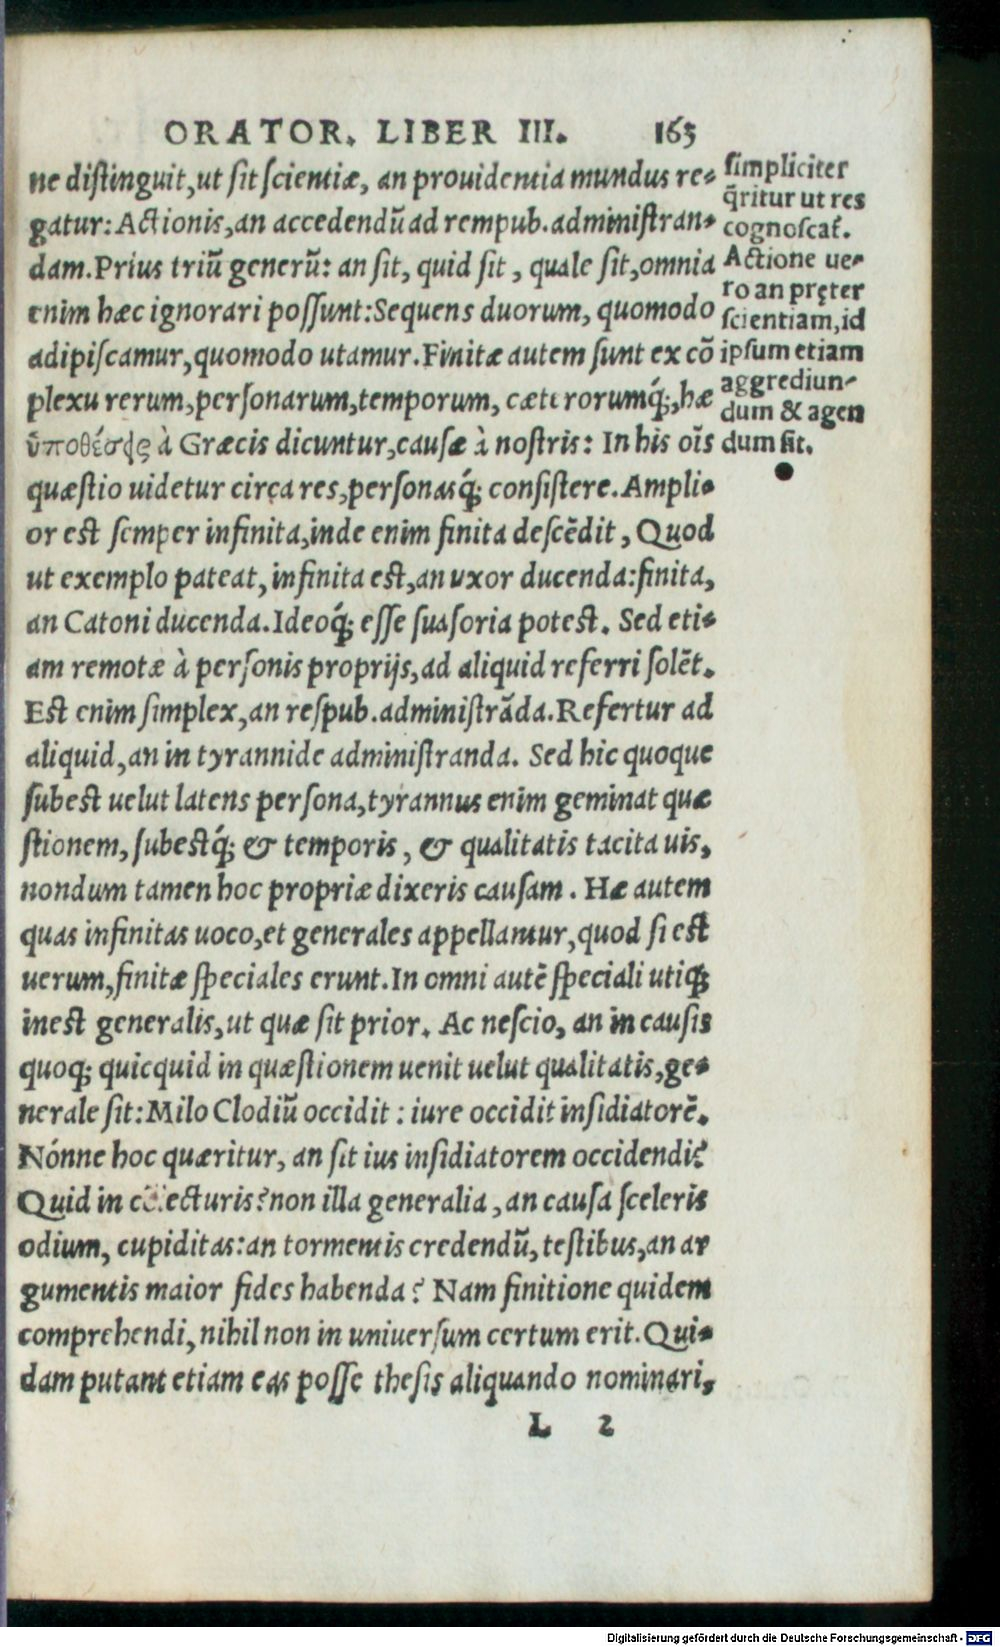 ORATOR. LIBER III. 163
ne distinguit, ut sit scientiæ, an prouidentia mundus re-
gatur: Actionis, an accedendũ ad rempub. administran-
dam. Prius triũ generũ: an sit, quid sit, quale sit, omnia
enim hæc ignorari possunt: Sequens duorum, quomodo
adipiscamur, quomodo utamur. Finitæ autem sunt ex cõ
plexu rerum, personarum, temporum, cæterorumq́;, hæ
ὑποθέσεις à Græcis dicuntur, causæ à nostris: In his oı̃s
quæstio uidetur circa res, personasq́; consistere. Ampli-
or est semper infinita, inde enim finita descẽdit, Quod
ut exemplo pateat, infinita est, an uxor ducenda: finita,
an Catoni ducenda. Ideoq́; esse suasoria potest. Sed eti-
am remotæ à personis proprijs, ad aliquid referri solẽt.
Est enim simplex, an respub. administrãda. Refertur ad
aliquid, an in tyrannide administranda. Sed hic quoque
subest uelut latens persona, tyrannus enim geminat quæ
stionem, subestq́; & temporis, & qualitatis tacita uis,
nondum tamen hoc propriæ dixeris causam. Hæ autem
quas infinitas uoco, et generales appellantur, quod si est
uerum, finitæ speciales erunt. In omni autẽ speciali utiq;
inest generalis, ut quæ sit prior. Ac nescio, an in causis
quoq; quicquid in quæstionem uenit uelut qualitatis, ge-
nerale sit: Milo Clodiũ occidit: iure occidit insidiatorẽ.
Nónne hoc quæritur, an sit ius insidiatorem occidendi?
Quid in cõiecturis? non illa generalia, an causa sceleris
odium, cupiditas: an tormentis credendũ, testibus, an ar
gumentis maior fides habenda? Nam finitione quidem
comprehendi, nihil non in uniuersum certum erit. Qui-
dam putant etiam eas posse thesis aliquando nominari,
L 2
simpliciter
q̃ritur ut res
cognoscat̃.
Actione ue-
ro an pręter
scientiam, id
ipsum etiam
aggrediun-
dum & agen
dum sit.
Digitalisierung gefördert durch die Deutsche Forschungsgemeinschaft - DFG